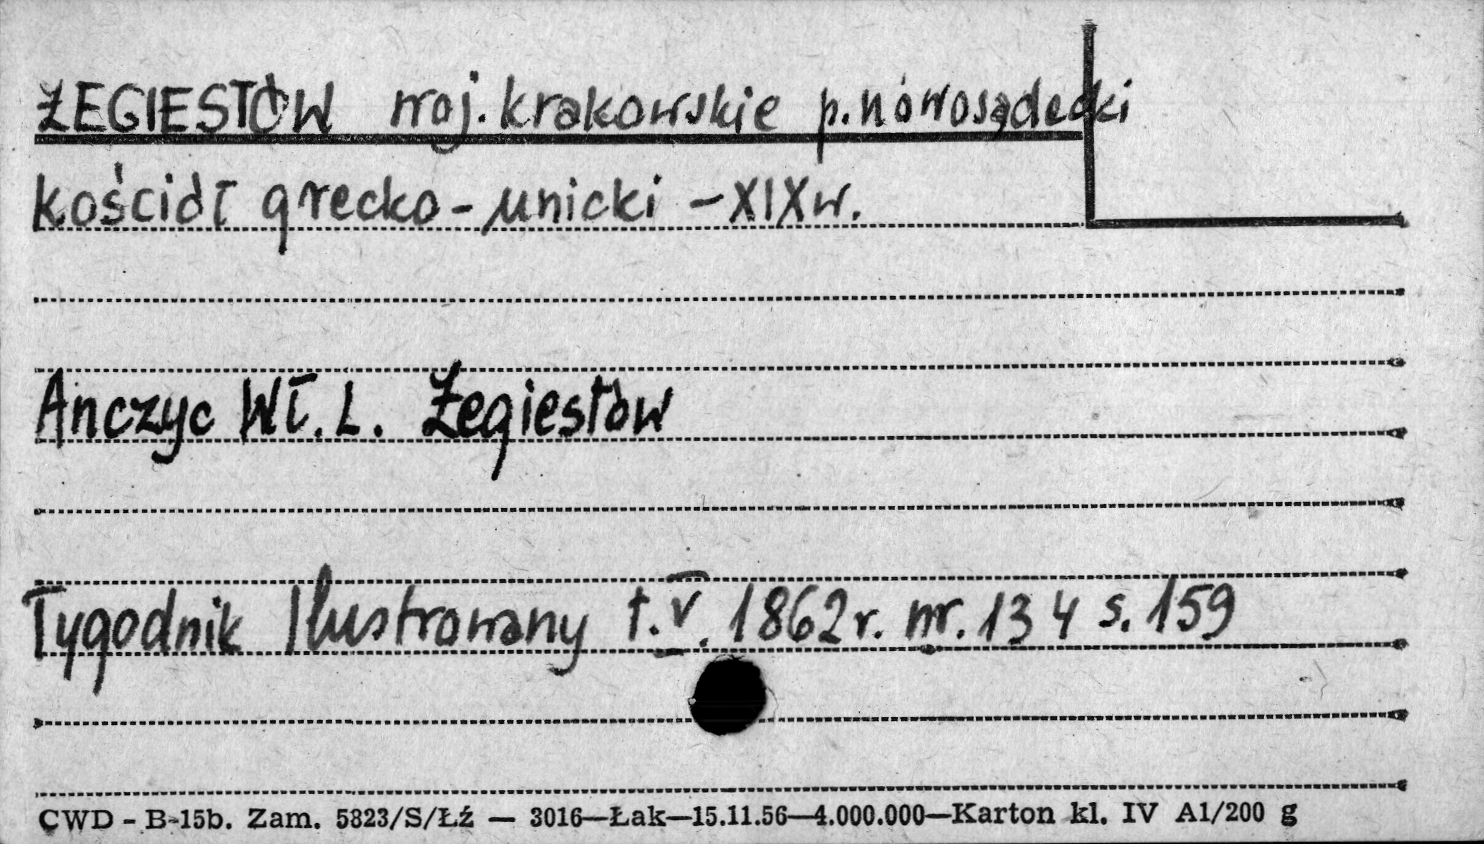 ŻEGIESTÓW woj. krakowskie p. nowosądecki
kościół grecko-unicki - XIX w.
Anczyc Wł. L. Żegiestów
Tygodnik Ilustrowany t. V. 1862 r. nr. 134 s. 159
CWD - B-15b. Zam. 5823/S/Łź — 3016—Łak—15.11.56—4.000.000—Karton kl. IV A1/200 g